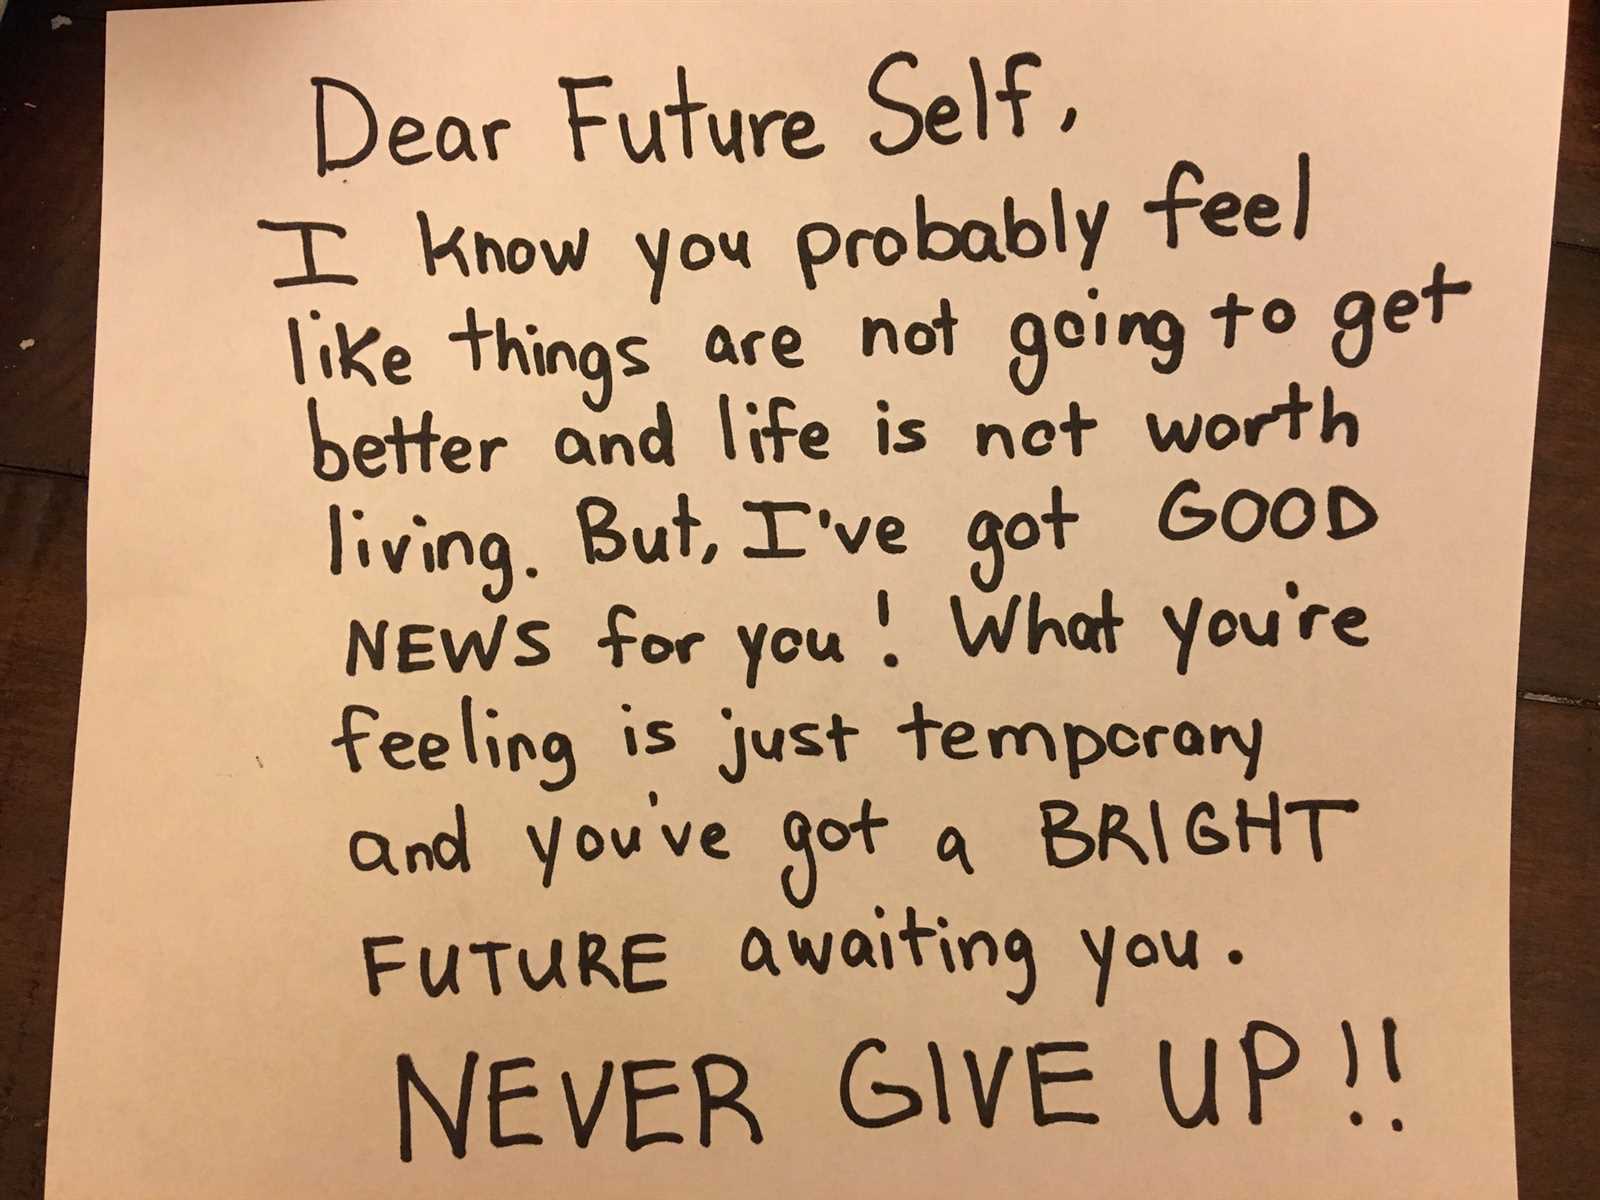 Dear Future Self,
I know you probably feel
like things are not going to get
better and life is not worth
living. But, I've got GOOD
NEWS for you! What you're
feeling is just temporary
and you've got a BRIGHT
FUTURE awaiting you.
NEVER GIVE UP!!